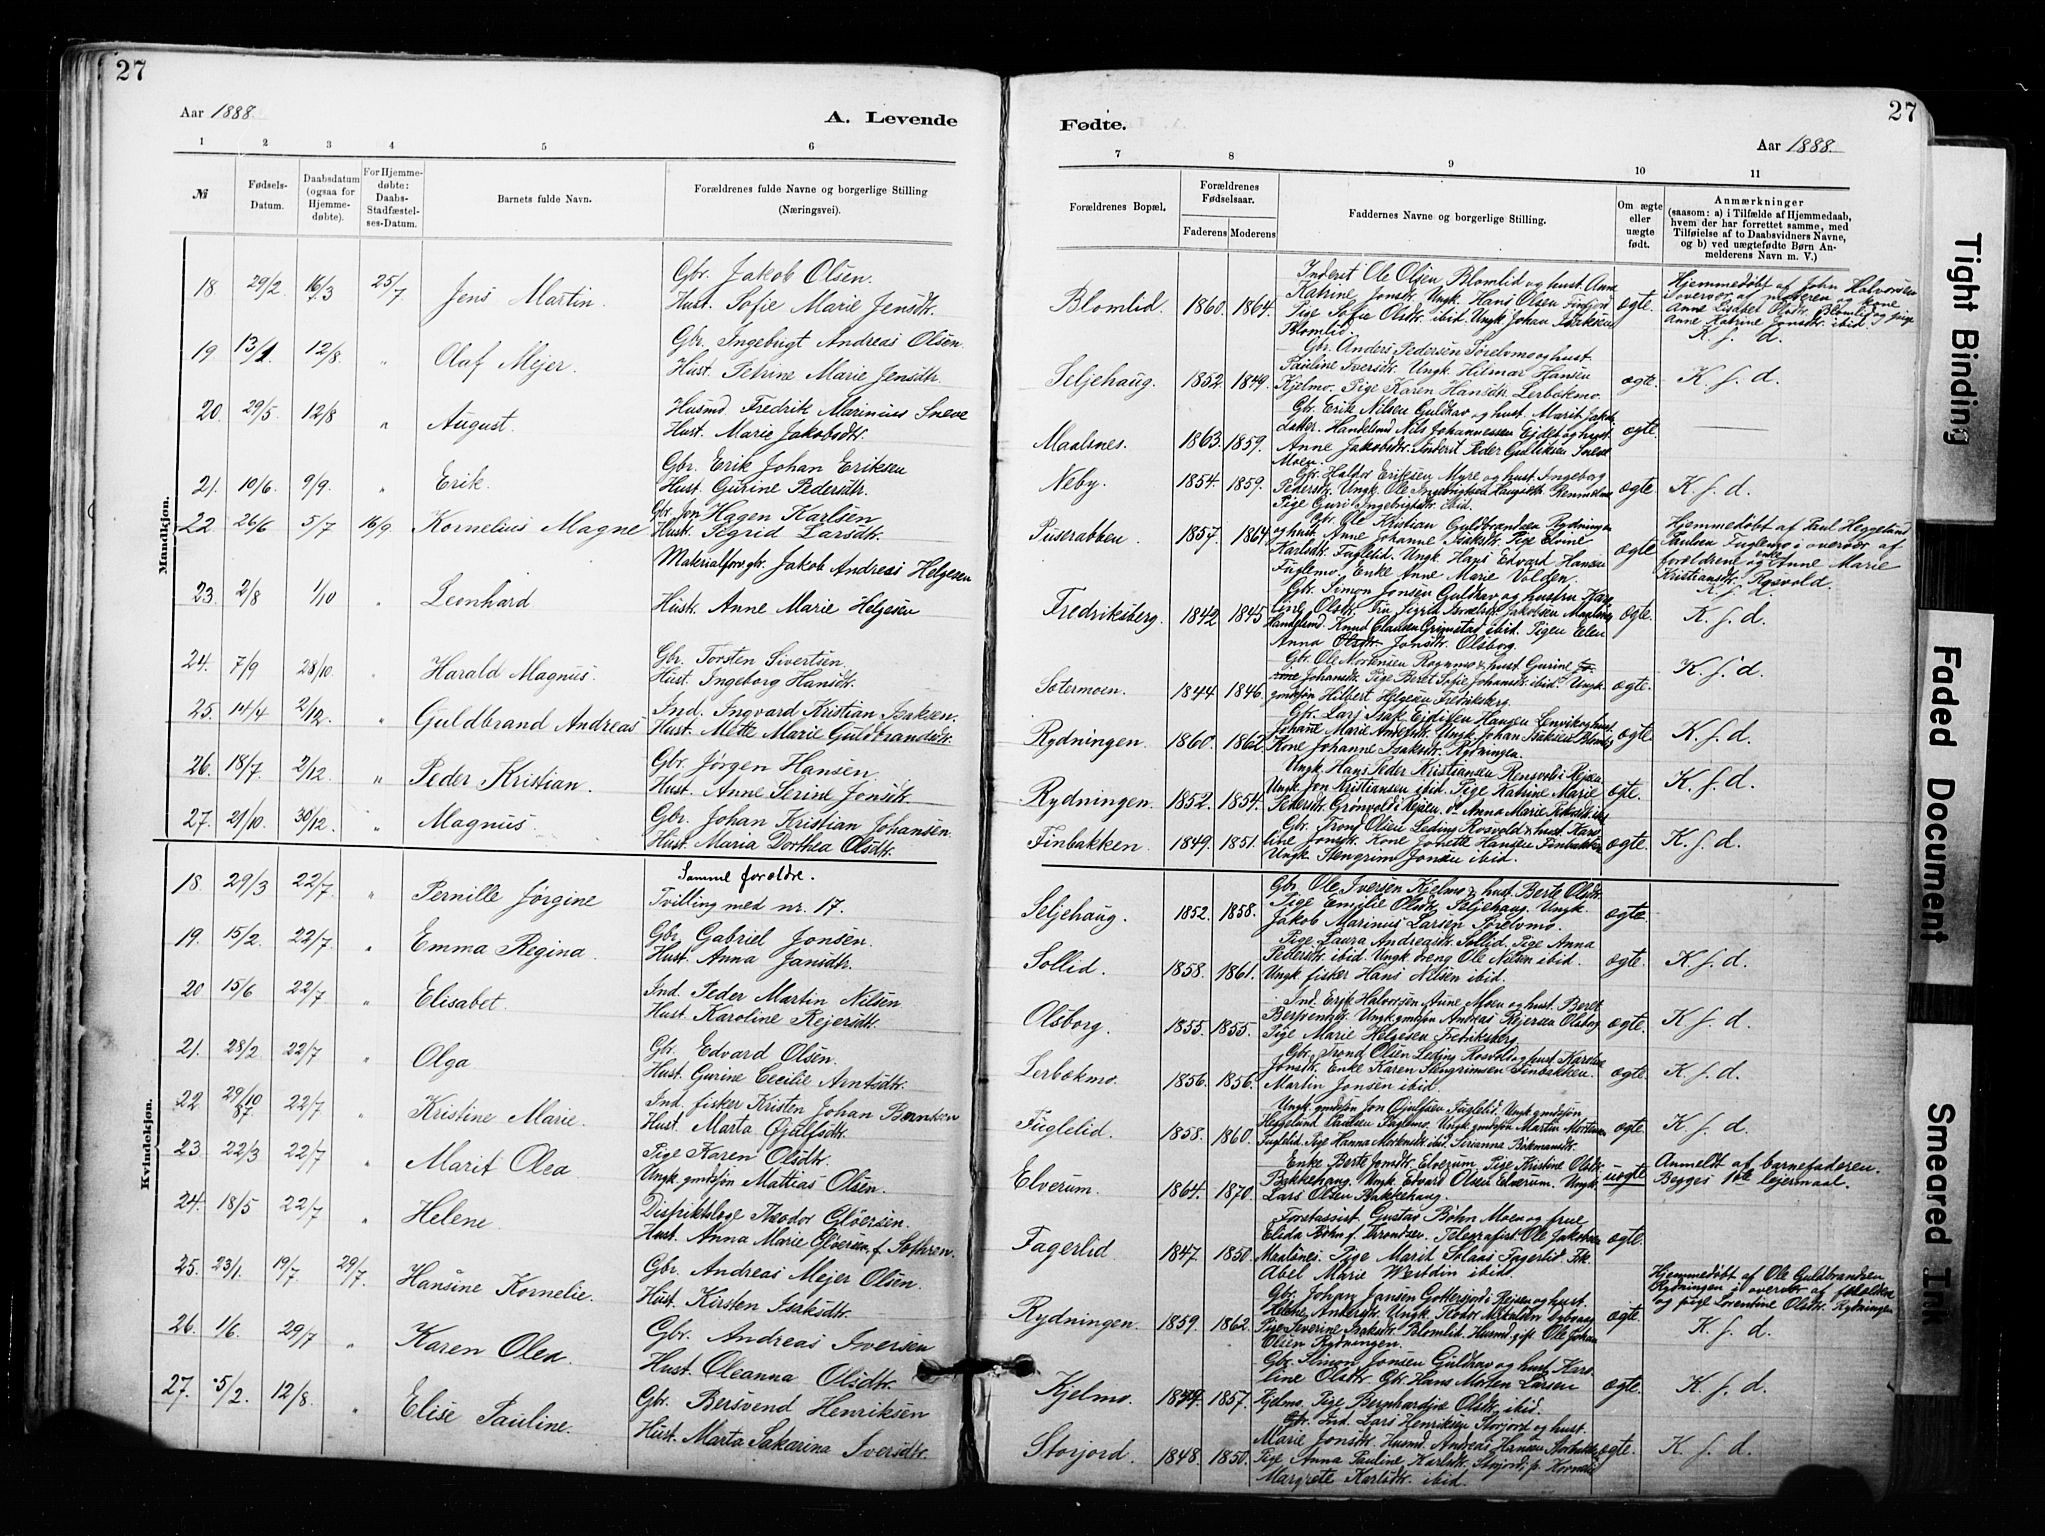 27
Aar 1888.
A. Levende
1 2 3 4 5 6
№
Fødsels-
Datum.
Daabsdatum
(ogsaa for
Hjemme-
døbte).
For Hjemme-
døbte:
Daabs-
Stadfæstel-
ses-Datum.
Barnets fulde Navn.
Forældrenes fulde Navne og borgerlige Stilling
(Næringsvei).
Mandkjøn.
18. 29/2 16/3 25/7 Jens Martin.
Gbr. Jakob Olsen.
Hust. Sofie Marie Jensdtr.
19 13/1 12/8 " Olaf Mejer.
Gbr. Ingebrigt Andreas Olsen.
Hust. Petrine Marie Jensdtr.
20 29/5. 12/8 " August.
Husmd. Fredrik Marinius Sneve
Hust. Marie Jakobsdtr.
21. 10/6. 9/9. " Erik.
Gbr. Erik Johan Eriksen
Hust. Gurine Pedersdtr.
22. 26/6 5/7 16/9 Kornelius Magne
Gbr. Jon Hagen Karlsen
Hust. Sigrid Larsdtr.
23. 2/8 1/10 " Leonhard
Materialforv.gbr. Jakob Andreas Helgesen
Hust. Anne Marie Helgesen
24. 7/9 28/10. " Harald Magnus.
Gbr. Torsten Sivertsen.
Hust. Ingeborg Hansdtr.
25. 14/4 2/12. " Guldbrand Andreas
Ind. Ingvard Kristian Isaksen.
Hust. Mette Marie Guldbrandsdtr.
26. 18/7. 2/12. " Peder Kristian.
Gbr. Jørgen Hansen.
Hust. Anne Serine Jonsdtr.
27. 21/10. 30/12. " Magnus.
Gbr. Johan Kristian Johansen.
Hust. Maria Dorthea Olsdtr.
Kvindekjøn.
18. 29/3 22/7. " Pernille Jørgine
Samme forældre.
Tvilling med nr. 17.
19. 15/2. 22/7. " Emma Regina.
Gbr. Gabriel Jonsen.
Hust. Anna Jansdtr.
20 15/6 22/7 " Elisabet.
Ind. Peder Martin Nilsen
Hust. Karoline Rejersdtr.
21. 28/2 22/7 " Olga
Gbr. Edvard Olsen.
Hust. Gurine Cecilie Arntsdtr.
22 29/10 87 22/7 " Kristine Marie.
Ind. fisker Kristen Johan Berntsen
Hust. Marta Ojulfsdtr.
23. 22/3 22/7 " Marit Olea
Pige Karen Olsdtr.
Ungk. gmdsøn Mattias Olsen.
24. 18/5 22/7 " Helene.
Distriktslæge Theodor Gløersen.
Hust. Anna Marie Gløersen f. Sothren.
25. 23/1. 19/7 29/7 Hansine Kornelie.
Gbr. Andreas Mejer Olsen.
Hust. Kirsten Isaksdtr.
26. 1/6. 29/7 " Karen Olea.
Gbr. Andreas Iversen
Hust. Oleanna Olsdtr.
27. 5/2. 12/8. " Elise Pauline.
Gbr. Bersvend Henriksen
Hust. Marta Sakarina Iversdtr.
27
Fødte.
Aar 1888.
7 8 9 10 11
Forældrenes Bopæl.
Forældrenes
Fødselsaar.
Faderens Moderens
Faddernes Navne og borgerlige Stilling.
Om ægte
eller
uægte
født.
Anmærkninger
(saasom: a) i Tilfælde af Hjemmedaab,
hvem der har forrettet samme, med
Tilføielse af to Daabsvidners Navne,
og b) ved uægtefødte Børn An-
melderens Navn m. V.)
Blomlid. 1860. 1864.
Inderst Ole Olsen Blomlid og hust. Anne
Katrine Jonsdtr. Ungk. Hans Olsen Finfjord
Pige Sofie Olsdtr. ibid. Ungk. Johan Isaksen
Blomlid.
ægte.
Hjemmedøbt af John Halvorsen
i overvær af moderen og kone
Anne Lisabet Olsdtr. Blomlid og pige
Anne Katrine Jonsdtr. ibid.
K. f. d.
Seljehaug. 1852. 1849.
Gbr. Anders Pedersen Sørelvmo og hust.
Pauline Iversdtr. Ungk. Hilmar Hansen
Kjelmo. Pige Karen Hansdtr. Lerbækmo.
ægte. K. f. d.
Maalsnes. 1863. 1859.
Gbr. Erik Nilsen Guldhav og hust. Marit Jakobs
datter. Handelsmd. Nils Johannessen Ejdet og hust.
Anne Jakobsdtr. Inderst Peder Gulliksen Sneve
Moen.
ægte.
Neby. 1854. 1859.
Gbr. Haldor Eriksen Myre og hust. Ingeborg
Pedersdtr. Ungk. Ole Ingebrigtsen
Pige Guri Ingebrigtsdtr. ibid.
ægte K. f. d.
Puserabben. 1857. 1864.
Gbr. Ole Kristian Guldbrandsen Rydningen
og hust. Anne Johanne Isaksdtr. Pige Elvine
Karlsdtr. Fuglelid. Ungk. Hans Edvard Hansen
Fuglemo. Enke Anne Marie Volden.
ægte
Hjemmedøbt af Paul Heggelund
Paulsen Fuglemo i overvær af
forældrene og enke Anne Marie
Kristiansdtr. Rosvold.
K. f. d.
Fredriksberg. 1842. 1845.
Gbr. Simon Jonsen Guldhav og hustru Karo
line Olsdtr. Fru Sigrid Jakobsen
Handelsmd. Knud Clausen Grimstad ibid. Pigen Elen
Anna Olsdtr. Jonsdtr. Olsborg.
ægte. K. f. d.
Sætermoen. 1844. 1846.
Gbr. Ole Mortensen Rognmo & hust. Gurine Jo-
Johansdtr. Pige Beret Sofie Johansdtr. ibid. Ungk.
gmdsøn Hilbert Helgesen Fredriksberg.
ægte. K. f. d.
Rydningen. 1860. 1862.
Gbr. Lars Isak Ejdissen Hansen Lenvik og hust.
Johanne Marie Andersdtr. Ungk. Johan Isaksen Blomlid
Kone Johanne Isaksdtr. Rydningen.
ægte K. f. d.
Rydningen. 1852. 1854.
Ungk. Hans Peder Kristiansen Rensvold i Rejsen
Ungk. Jon Kristiansen ibid. Pige Katrine Marie
Pedersdtr. Grønvold i Rejsen. do Anna Marie
ægte. K. f. d.
Finbakken. 1849. 1851.
Gbr. Trond Olsen Leding Rosvold & hust. Karo
line Jonsdtr. Kone Jonette Hansen Finbakken
Ungk. Stengrim Jonsen ibid.
ægte. K. f. d.
Seljehaug. 1852. 1858.
Gbr. Ole Iversen Kjelmo & hust. Berte Olsdtr.
Pige Emilie Olsdtr. Seljehaug. Ungk.
Jakob Marinius Larsen Sørelvmo.
ægte
Sollid. 1858. 1861.
Pige Laura Andreasdtr. Sollid. Pige Anna
Pedersdtr. ibid. Ungk. dreng Ole Nilsen ibid.
Ungk. fisker Hans Nilsen ibid.
ægte. K. f. d.
Olsborg. 1855. 1855.
Ind. Erik Halvorsen Aune Moen og hust. Beret
Bersvendsdtr. Ungk. gmdsøn Andreas Rejersen Olsborg
Pige Marie Helgesen Fredriksberg.
ægte. K. f. d.
Lerbækmo. 1856. 1856.
Gbr. Trond Olsen Leding Rosvold og hust. Karoline
Jonsdtr. Enke Karen Stengrimsen Finbakken.
Martin Jonsen ibid.
ægte. K. f. d.
Fuglelid. 1858. 1860.
Ungk. gmdsøn Jon Ojulfsen Fuglelid. Ungk. gmdsøn
Heggelund Paulsen Fuglemo. Ungk. gmdsøn Martin Mortensen
Fuglelid. Pige Hanna Mortensdtr. ibid. Serianna Bertmansdtr.
ægte K. f. d.
Elverum. 1864. 1870.
Enke Berte Jonsdtr. Elverum. Pige Kristine Olsdtr.
Bakkehaug. Ungk. Edvard Olsen Elverum. Ungk.
Lars Olsen Bakkehaug.
uægte
Anmeldt af barnefaderen.
Begges 1ste lejermaal.
Fagerlid 1847. 1850.
Forstassist. Gustav Bøhn Moen og frue
Elida Bøhn f. Trondsen. Telegrafist Ole Jakobsen
Maalsnes. Pige Marit Fagerlid. Frk.
Abel Marie Westdin ibid.
ægte.
Rydningen 1859. 1862.
Gbr. Johan Jansen Gottersjord i Rejsen og hust.
Helene Andersdtr. Ungk. Teodor
Pige Severine Isaksdtr. Blomlid. Husmd. gift Ole Johan
Olsen Rydningen.
ægte.
Hjemmedøbt af Ole Guldbrandsen
Rydningen i overvær af forældrene
og pige Lorentine Olsdtr. Rydningen
K. f. d.
Kjelmo. 1849. 1857.
Gbr. Simon Jonsen Guldhav og hust. Karo
line Olsdtr. Gbr. Hans Morten Larsen
Kjelmo. Pige Bernhardine Olsdtr. ibid.
ægte. K. f. d.
Storjord 1848. 1850.
Gbr. Ind. Lars Henriksen Storjord og hust.
Marie Jonsdtr. Husmd. Andreas Hansen
Pige Anna Pauline Karlsdtr. Storjord, p. Kornelie
Margrete Karlsdtr. ibid.
ægte. K. f. d.
Tight Binding
Faded Document
Smeared Ink